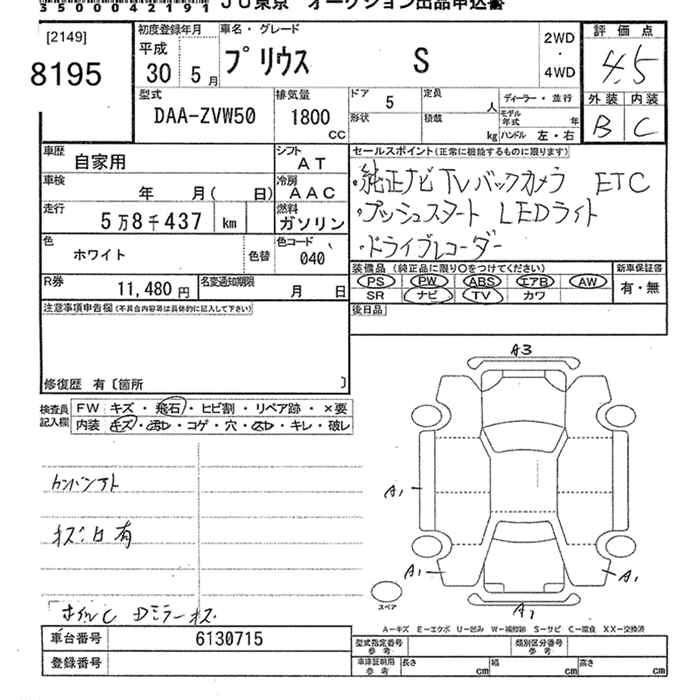 35000421 91 JU東京 オークション出品申込書
[2149]
8195
初度登録年月
平成
30 5 月
車名・グレード
プリウス S
2WD
・
4WD
評価点
4.5
外装 内装
B C
型式
DAA-ZVW50
排気量
1800
CC
ドア 5
形状
定員 人
積載 kg
ディーラー・並行
モデル年式 年
ハンドル 左・右
車歴
自家用
シフト
AT
車検
年 月( 日)
冷房
AAC
走行
5万8千437 km
燃料
ガソリン
色
ホワイト
色替
色コード
040
R券
11,480円
名変通知期限
月 日
セールスポイント(正常に機能するものに限ります)
・純正ナビ TV バックカメラ ETC
・プッシュスタート LEDライト
・ドライブレコーダー
装備品 (純正品に限り○をつけてください)
PS PW ABS エアB AW
SR ナビ TV カワ
新車保証書
有・無
後日品
注意事項申告欄(不具合内容等は具体的に記入して下さい)
修復歴 有〔箇所 〕
検査員
記入欄
FW キズ・飛石・ヒビ割・リペア跡・×要
内装 キズ・汚レ・コゲ・穴・スレ・キレ・破レ
A3
A1
A1
A1
A1
スペア
A−キズ E−エクボ U−凹み W−補修跡 S−サビ C−腐食 XX−交換済
車台番号 6130715
登録番号
型式指定番号
参考
類別区分番号
参考
車庫証明用
参考
長さ cm 幅 cm 高さ cm